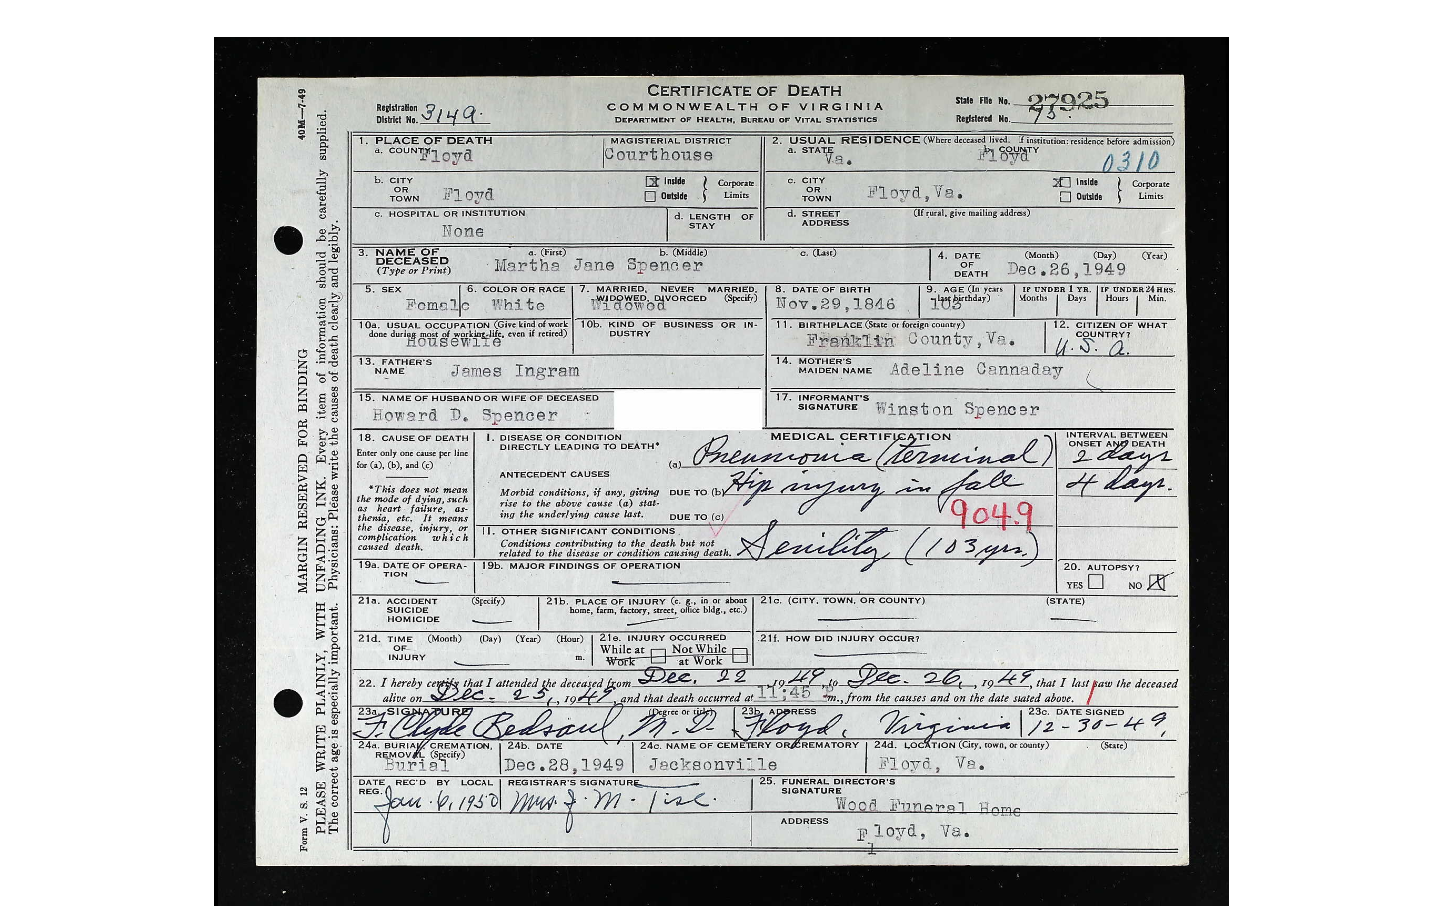 CERTIFICATE OF DEATH
COMMONWEALTH OF VIRGINIA
DEPARTMENT OF HEALTH, BUREAU OF VITAL STATISTICS
Registration District No. 3149.
State File No. 27925
Registered No. 75.
40M—7-49
MARGIN RESERVED FOR BINDING
PLEASE WRITE PLAINLY, WITH UNFADING INK. Every item of information should be carefully supplied.
The correct age is especially important. Physicians: Please write the causes of death clearly and legibly.
Form V. S. 12
1. PLACE OF DEATH
a. COUNTY Floyd
MAGISTERIAL DISTRICT Courthouse
2. USUAL RESIDENCE (Where deceased lived. If institution: residence before admission)
a. STATE Va.
b. COUNTY Floyd
0310
b. CITY OR TOWN Floyd
Inside Outside Corporate Limits
c. CITY OR TOWN Floyd, Va.
Inside Outside Corporate Limits
c. HOSPITAL OR INSTITUTION None
d. LENGTH OF STAY
d. STREET ADDRESS (If rural, give mailing address)
3. NAME OF DECEASED (Type or Print)
a. (First) b. (Middle) c. (Last)
Martha Jane Spencer
4. DATE OF DEATH (Month) (Day) (Year)
Dec.26,1949
5. SEX Female
6. COLOR OR RACE White
7. MARRIED, NEVER MARRIED, WIDOWED, DIVORCED (Specify) Widowed
8. DATE OF BIRTH Nov.29,1846
9. AGE (In years last birthday) 103
IF UNDER 1 YR. Months Days
IF UNDER 24 HRS. Hours Min.
10a. USUAL OCCUPATION (Give kind of work done during most of working life, even if retired) Housewife
10b. KIND OF BUSINESS OR INDUSTRY
11. BIRTHPLACE (State or foreign country) Franklin County, Va.
12. CITIZEN OF WHAT COUNTRY? U. S. A.
13. FATHER'S NAME James Ingram
14. MOTHER'S MAIDEN NAME Adeline Cannaday
15. NAME OF HUSBAND OR WIFE OF DECEASED
Howard D. Spencer
17. INFORMANT'S SIGNATURE Winston Spencer
18. CAUSE OF DEATH
Enter only one cause per line for (a), (b), and (c)
*This does not mean the mode of dying, such as heart failure, asthenia, etc. It means the disease, injury, or complication which caused death.
MEDICAL CERTIFICATION
INTERVAL BETWEEN ONSET AND DEATH
I. DISEASE OR CONDITION DIRECTLY LEADING TO DEATH*
(a) Pneumonia (terminal) 2 days
ANTECEDENT CAUSES
Morbid conditions, if any, giving rise to the above cause (a) stating the underlying cause last.
DUE TO (b) Hip injury in fall 4 days.
DUE TO (c)
9049
II. OTHER SIGNIFICANT CONDITIONS
Conditions contributing to the death but not related to the disease or condition causing death.
Senility (103 yrs.)
19a. DATE OF OPERATION
19b. MAJOR FINDINGS OF OPERATION
20. AUTOPSY?
YES NO
21a. ACCIDENT SUICIDE HOMICIDE (Specify)
21b. PLACE OF INJURY (e. g., in or about home, farm, factory, street, office bldg., etc.)
21c. (CITY, TOWN, OR COUNTY) (STATE)
21d. TIME OF INJURY (Month) (Day) (Year) (Hour) m.
21e. INJURY OCCURRED
While at Work Not While at Work
21f. HOW DID INJURY OCCUR?
22. I hereby certify that I attended the deceased from Dec. 22, 1949, to Dec. 26, 1949, that I last saw the deceased
alive on Dec. 25, 1949, and that death occurred at 11:45 P m., from the causes and on the date stated above.
23a. SIGNATURE (Degree or title) F. Clyde Bedsaul, M. D.
23b. ADDRESS Floyd, Virginia
23c. DATE SIGNED 12-30-49,
24a. BURIAL, CREMATION, REMOVAL (Specify) Burial
24b. DATE Dec.28,1949
24c. NAME OF CEMETERY OR CREMATORY Jacksonville
24d. LOCATION (City, town, or county) (State) Floyd, Va.
DATE REC'D BY LOCAL REG. Jan. 6, 1950
REGISTRAR'S SIGNATURE Mrs. J. M. Tise.
25. FUNERAL DIRECTOR'S SIGNATURE Wood Funeral Home
ADDRESS Floyd, Va.
1